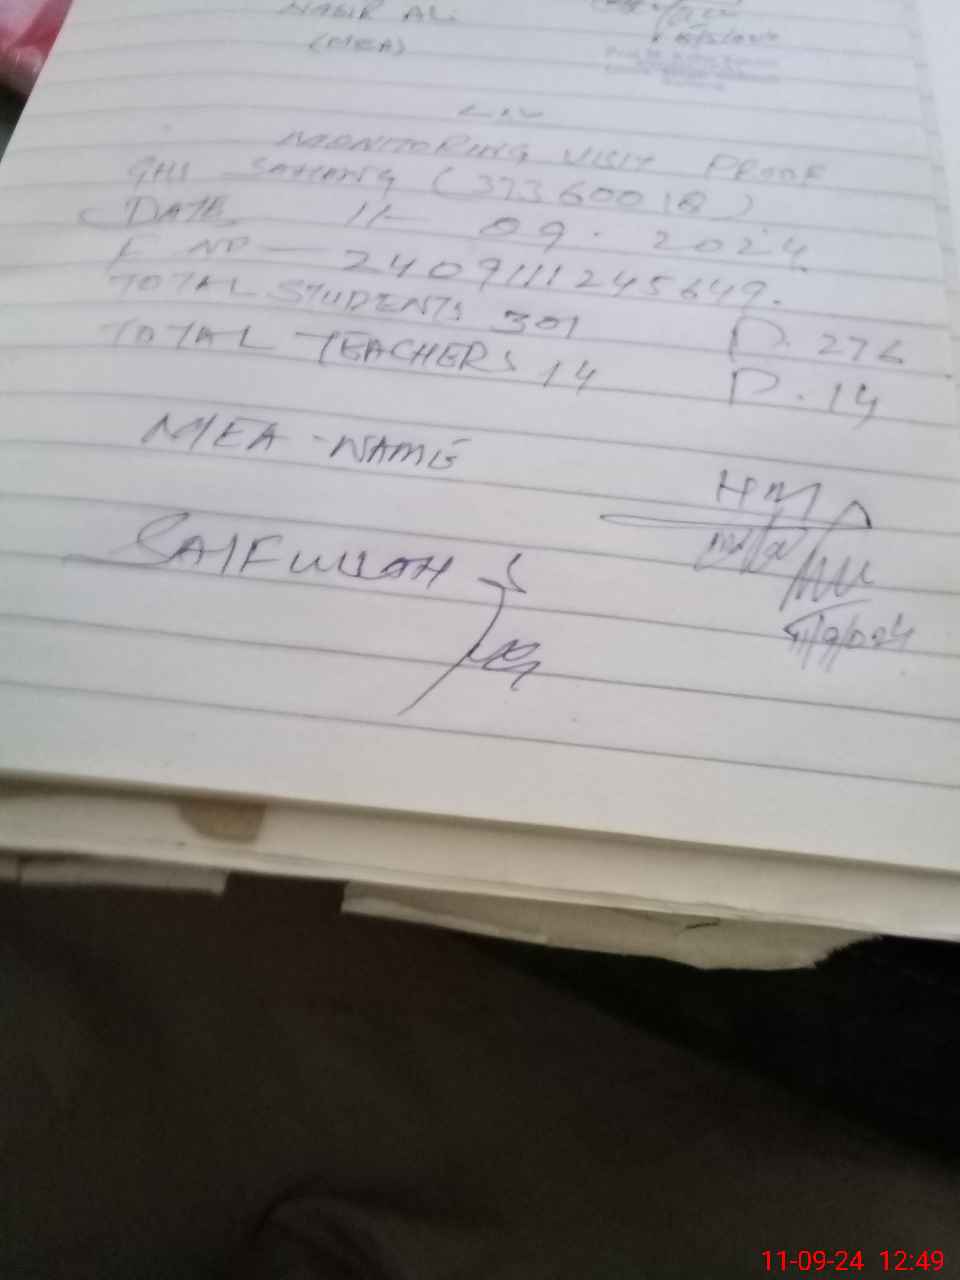 NASIR ALI
(MEA)
MONITORING VISIT PROOF
GHS SAHANG (37360018)
DATE 11-09.2024
F NO - 2409111245649.
TOTAL STUDENTS 301 P. 276
TOTAL TEACHERS 14 P. 14
MEA - NAME
SAIFULLAH
HM
11/9/024
11-09-24 12:49